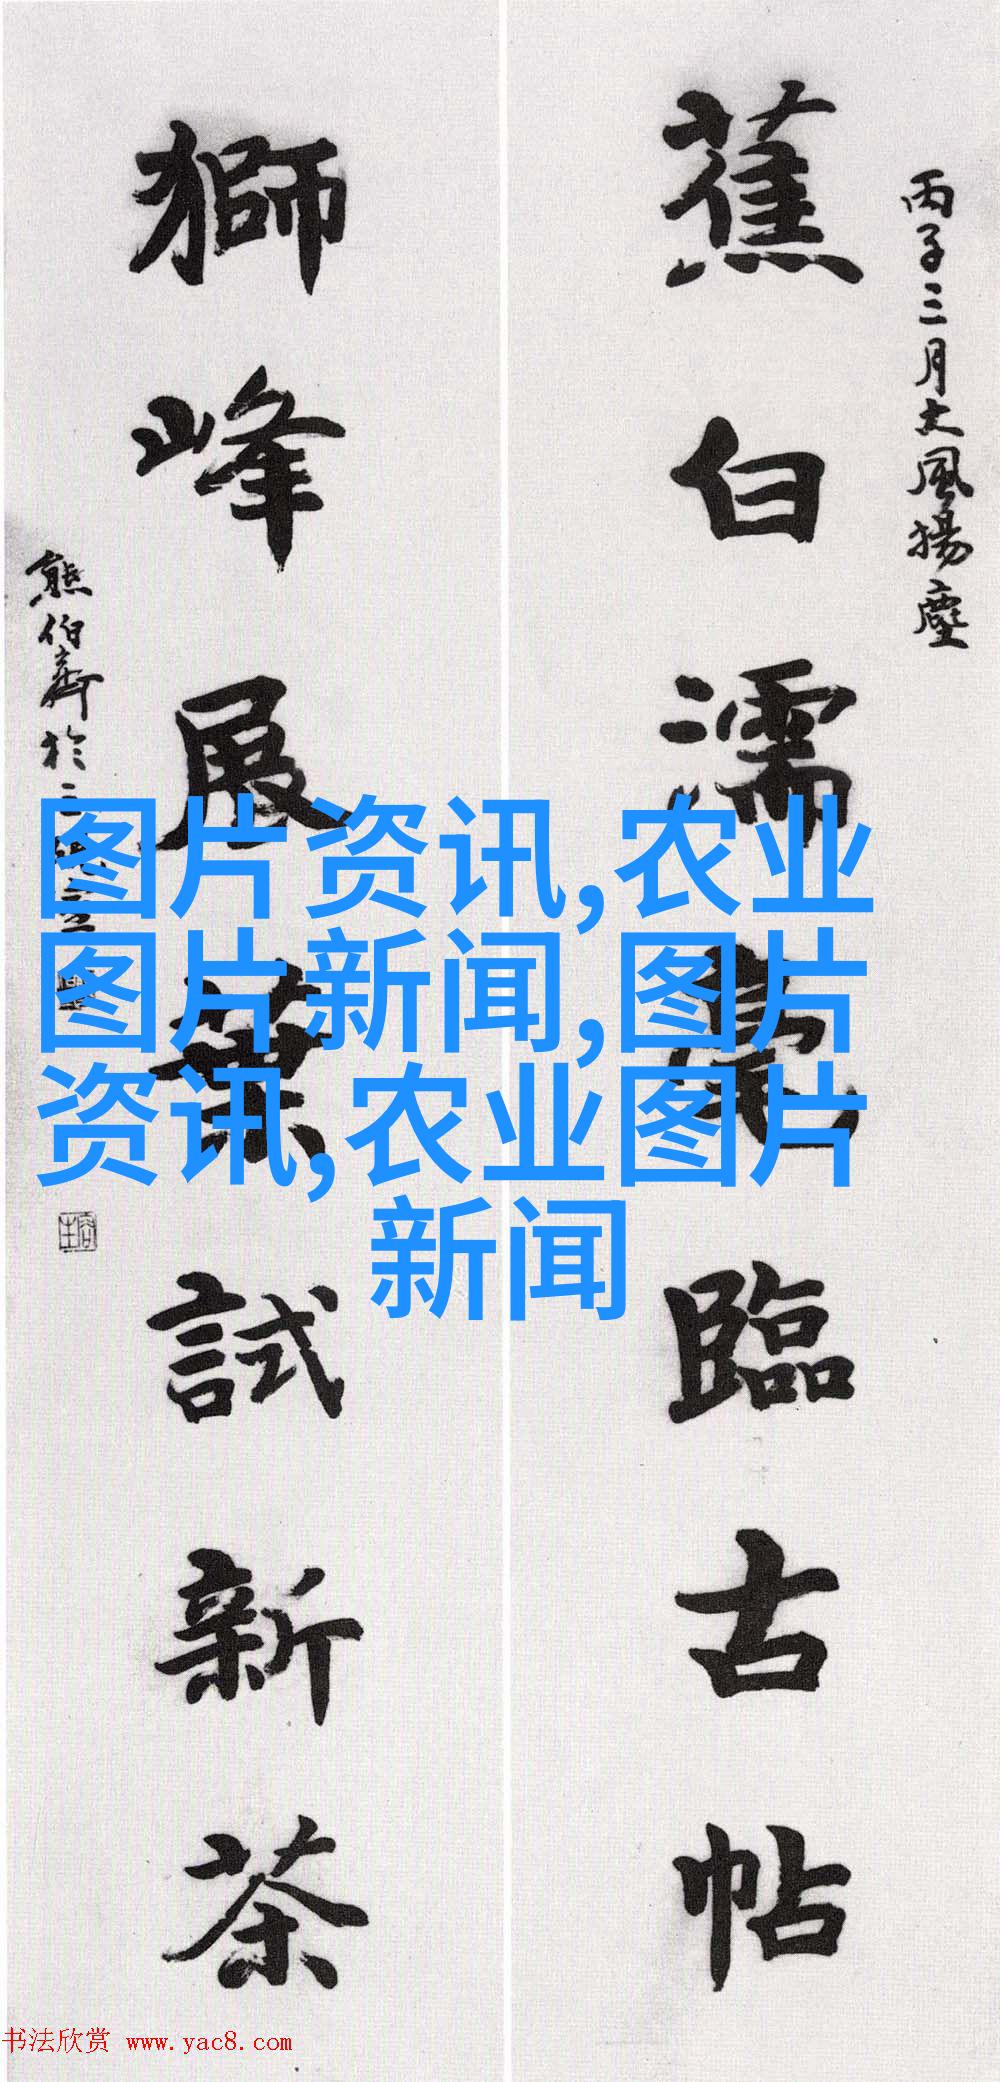 丙子三月大風揚塵
蕉白濡毫臨古帖
獅峰展葉試新茶
熊伯齊於三
图片资讯,农业
图片新闻,图片
资讯,农业图片
新闻
书法欣赏 www.yac8.com